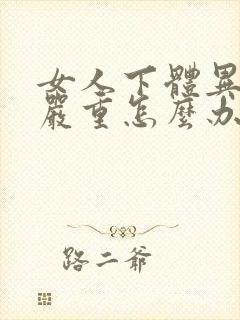 女人下體異
嚴重怎麼办
路二爷